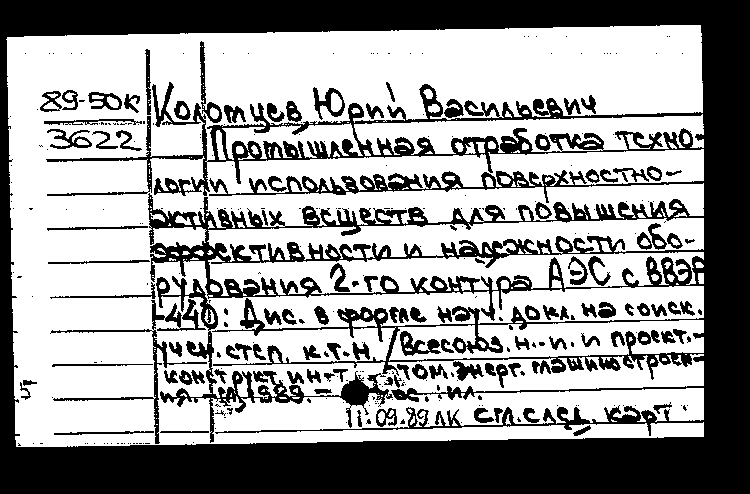 89-50к
3622
Колотцев Юрий Васильевич
Промышленная отработка техно-
логии использования поверхностно-
активных веществ для повышения
эффективности и надежности обо-
рудования 2-го контура АЭС с ВВЭР
-440: Дис. в форме науч. докл. на соиск.
учен. степ. к.т.н. / Всесоюз. н.-и. и проект.-
конструкт. ин-т атом. энерг. машинострое-
ния. - М, 1989. - с. : ил.
11.09.89 ЛК см. след. карт